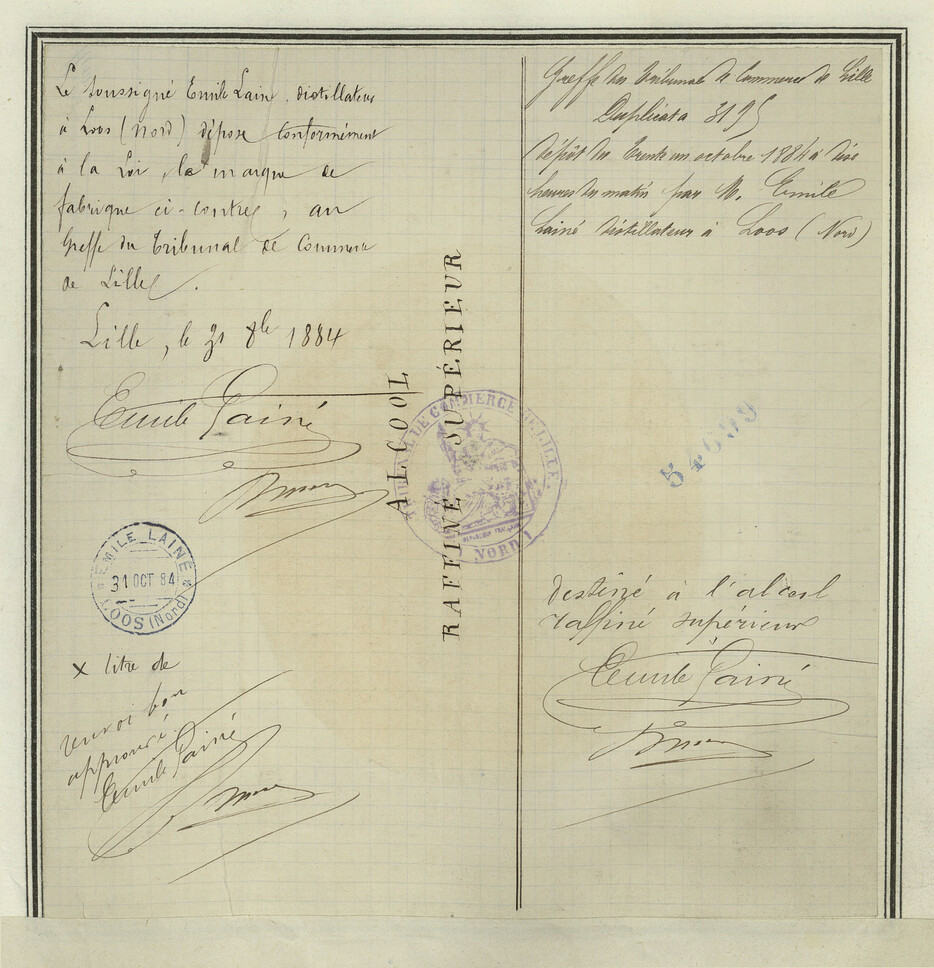 Le soussigné Emile Lainé, distillateur
à Loos (Nord) dépose conformément
à la Loi, la marque de
fabrique ci-contre, au
Greffe du Tribunal de Commerce
de Lille.
Lille, le 31 8bre 1884
Emile Lainé
EMILE LAINÉ
31 OCT 84
LOOS (Nord)
X litre de
renvoi bon
approuvé
Emile Lainé
ALCOOL
RAFFINÉ SUPÉRIEUR
TRIBUNAL DE COMMERCE DE LILLE
REPUBLIQUE FRANÇAISE
(NORD)
Greffe du Tribunal de Commerce de Lille
Duplicata 3195
Dépôt du trente un octobre 1884 à dix
heures du matin par M. Emile
Lainé distillateur à Loos (Nord)
54699
destiné à l'alcool
raffiné supérieur
Emile Lainé